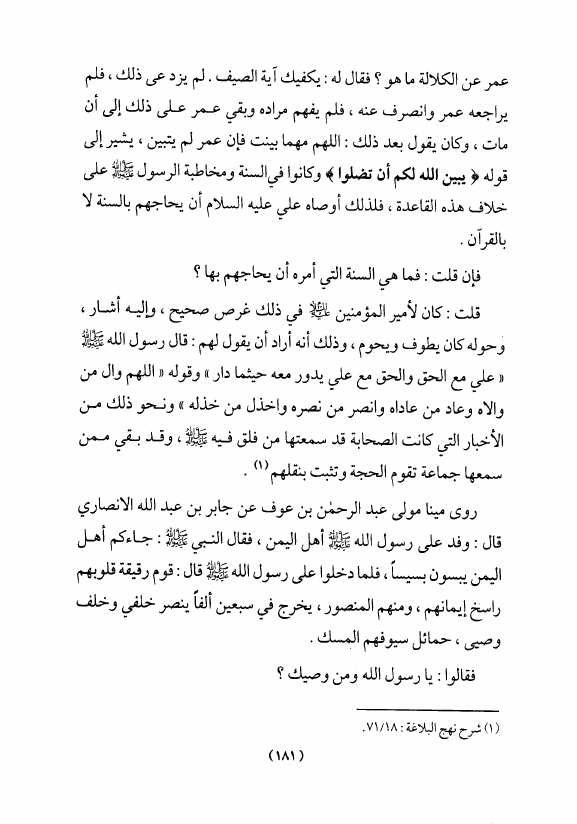 عمر عن الكلالة ما هو ؟ فقال له : يكفيك آية الصيف . لم يزد عى ذلك ، فلم
يراجعه عمر وانصرف عنه ، فلم يفهم مراده وبقي عمر على ذلك إلى أن
مات ، وكان يقول بعد ذلك : اللهم مهما بينت فإن عمر لم يتبين ، يشير إلى
قوله ﴿ يبين الله لكم أن تضلوا ﴾ وكانوا في السنة ومخاطبة الرسول ﷺ على
خلاف هذه القاعدة ، فلذلك أوصاه علي عليه السلام أن يحاجهم بالسنة لا
بالقرآن .
فإن قلت : فما هي السنة التي أمره أن يحاجهم بها ؟
قلت : كان لأمير المؤمنين عليه السلام في ذلك غرص صحيح ، وإليه أشار ،
وحوله كان يطوف ويحوم ، وذلك أنه أراد أن يقول لهم : قال رسول الله ﷺ
« علي مع الحق والحق مع علي يدور معه حيثما دار » وقوله « اللهم وال من
والاه وعاد من عاداه وانصر من نصره واخذل من خذله » ونحو ذلك من
الأخبار التي كانت الصحابة قد سمعتها من فلق فيه ﷺ ، وقد بقي ممن
سمعها جماعة تقوم الحجة وتثبت بنقلهم (١) .
روى مينا مولى عبد الرحمٰن بن عوف عن جابر بن عبد الله الانصاري
قال : وفد على رسول الله ﷺ أهل اليمن ، فقال النبي ﷺ : جاءكم أهل
اليمن يبسون بسيساً ، فلما دخلوا على رسول الله ﷺ قال : قوم رقيقة قلوبهم
راسخ إيمانهم ، ومنهم المنصور ، يخرج في سبعين ألفاً ينصر خلفي وخلف
وصيى ، حمائل سيوفهم المسك .
فقالوا : يا رسول الله ومن وصيك ؟
(١) شرح نهج البلاغة : ٧١/١٨.
(١٨١)